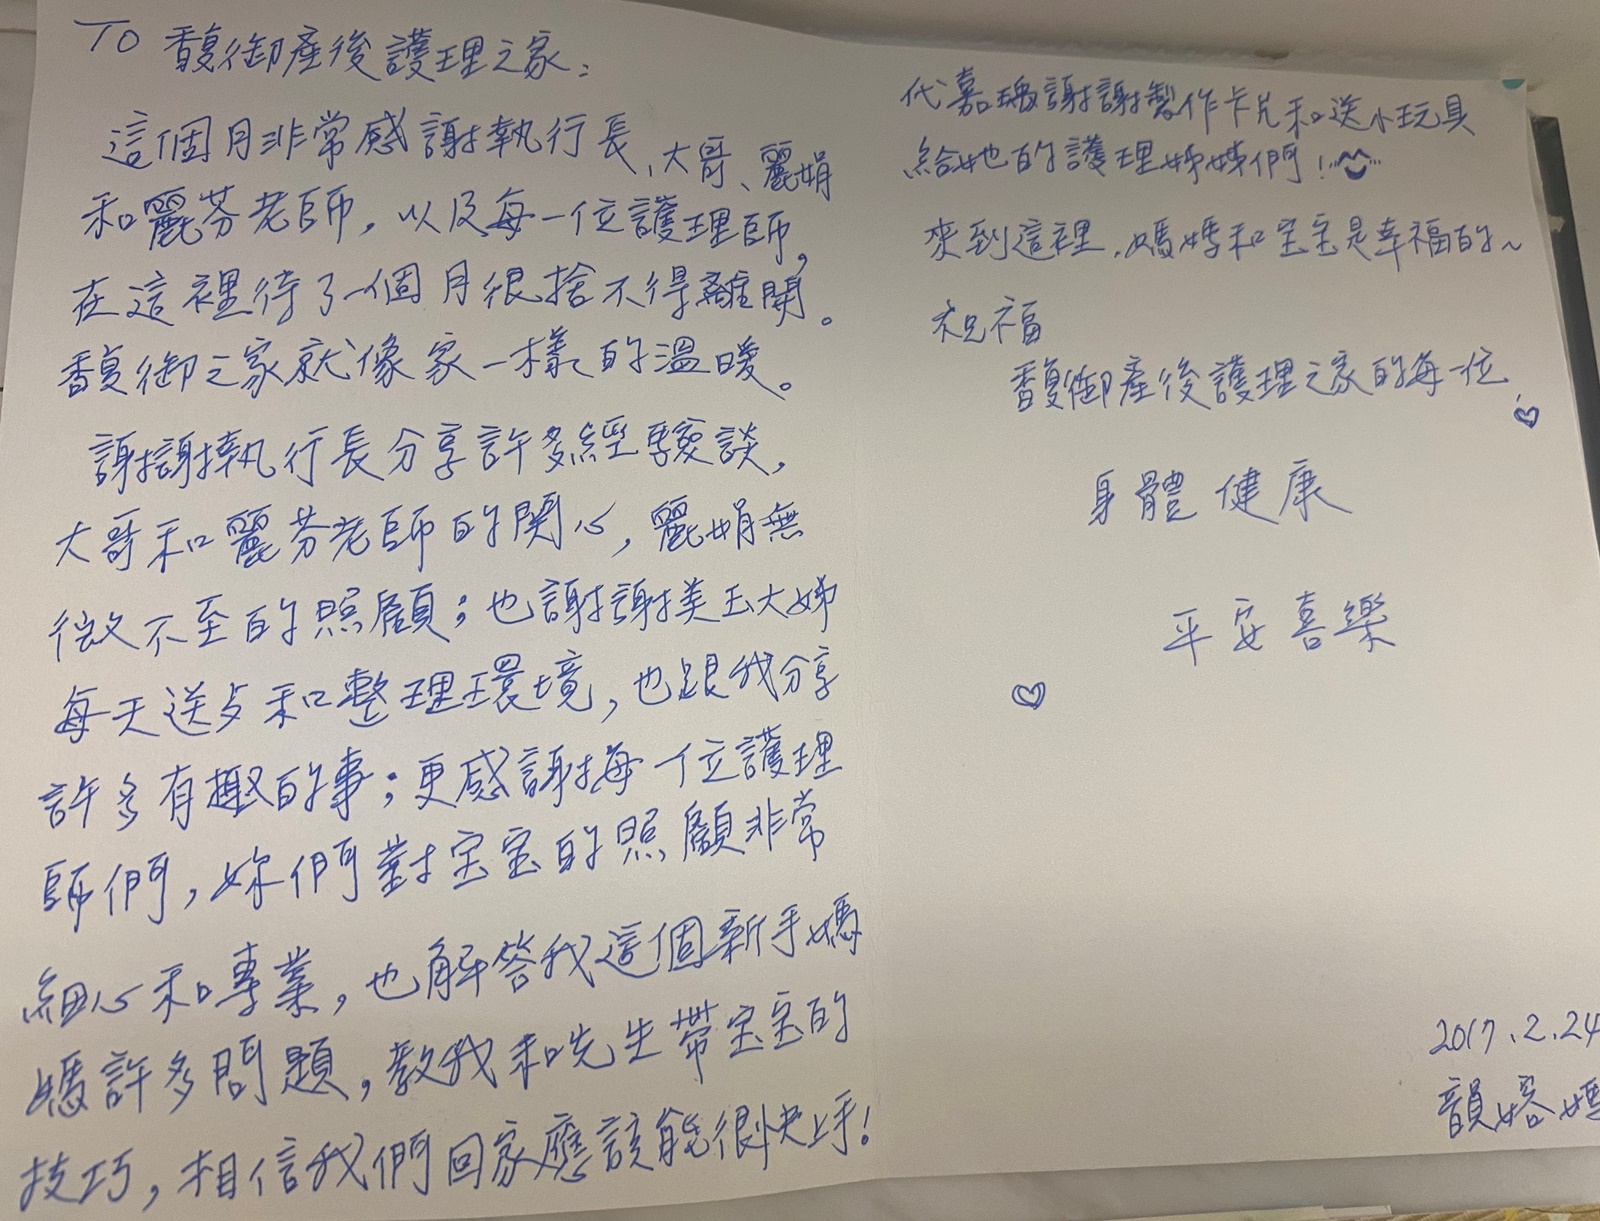 TO 馥御產後護理之家：
這個月非常感謝執行長、大哥、麗娟
和麗芬老師，以及每一位護理師，
在這裡待了一個月很捨不得離開。
馥御之家就像家一樣的溫暖。
謝謝執行長分享許多經驗談，
大哥和麗芬老師的關心，麗娟無
微不至的照顧；也謝謝美玉大姊
每天送点和整理環境，也跟我分享
許多有趣的事；更感謝每一位護理
師們，妳們對宝宝的照顧非常
細心和專業，也解答我這個新手媽
媽許多問題，教我和先生帶宝宝的
技巧，相信我們回家應該能很快上手！
代嘉瑀謝謝製作卡片和送小玩具
給她的護理姊姊們！
來到這裡，媽媽和宝宝是幸福的~
祝福
馥御產後護理之家的每一位
身體健康
平安喜樂
2017.2.24
韻嫆媽